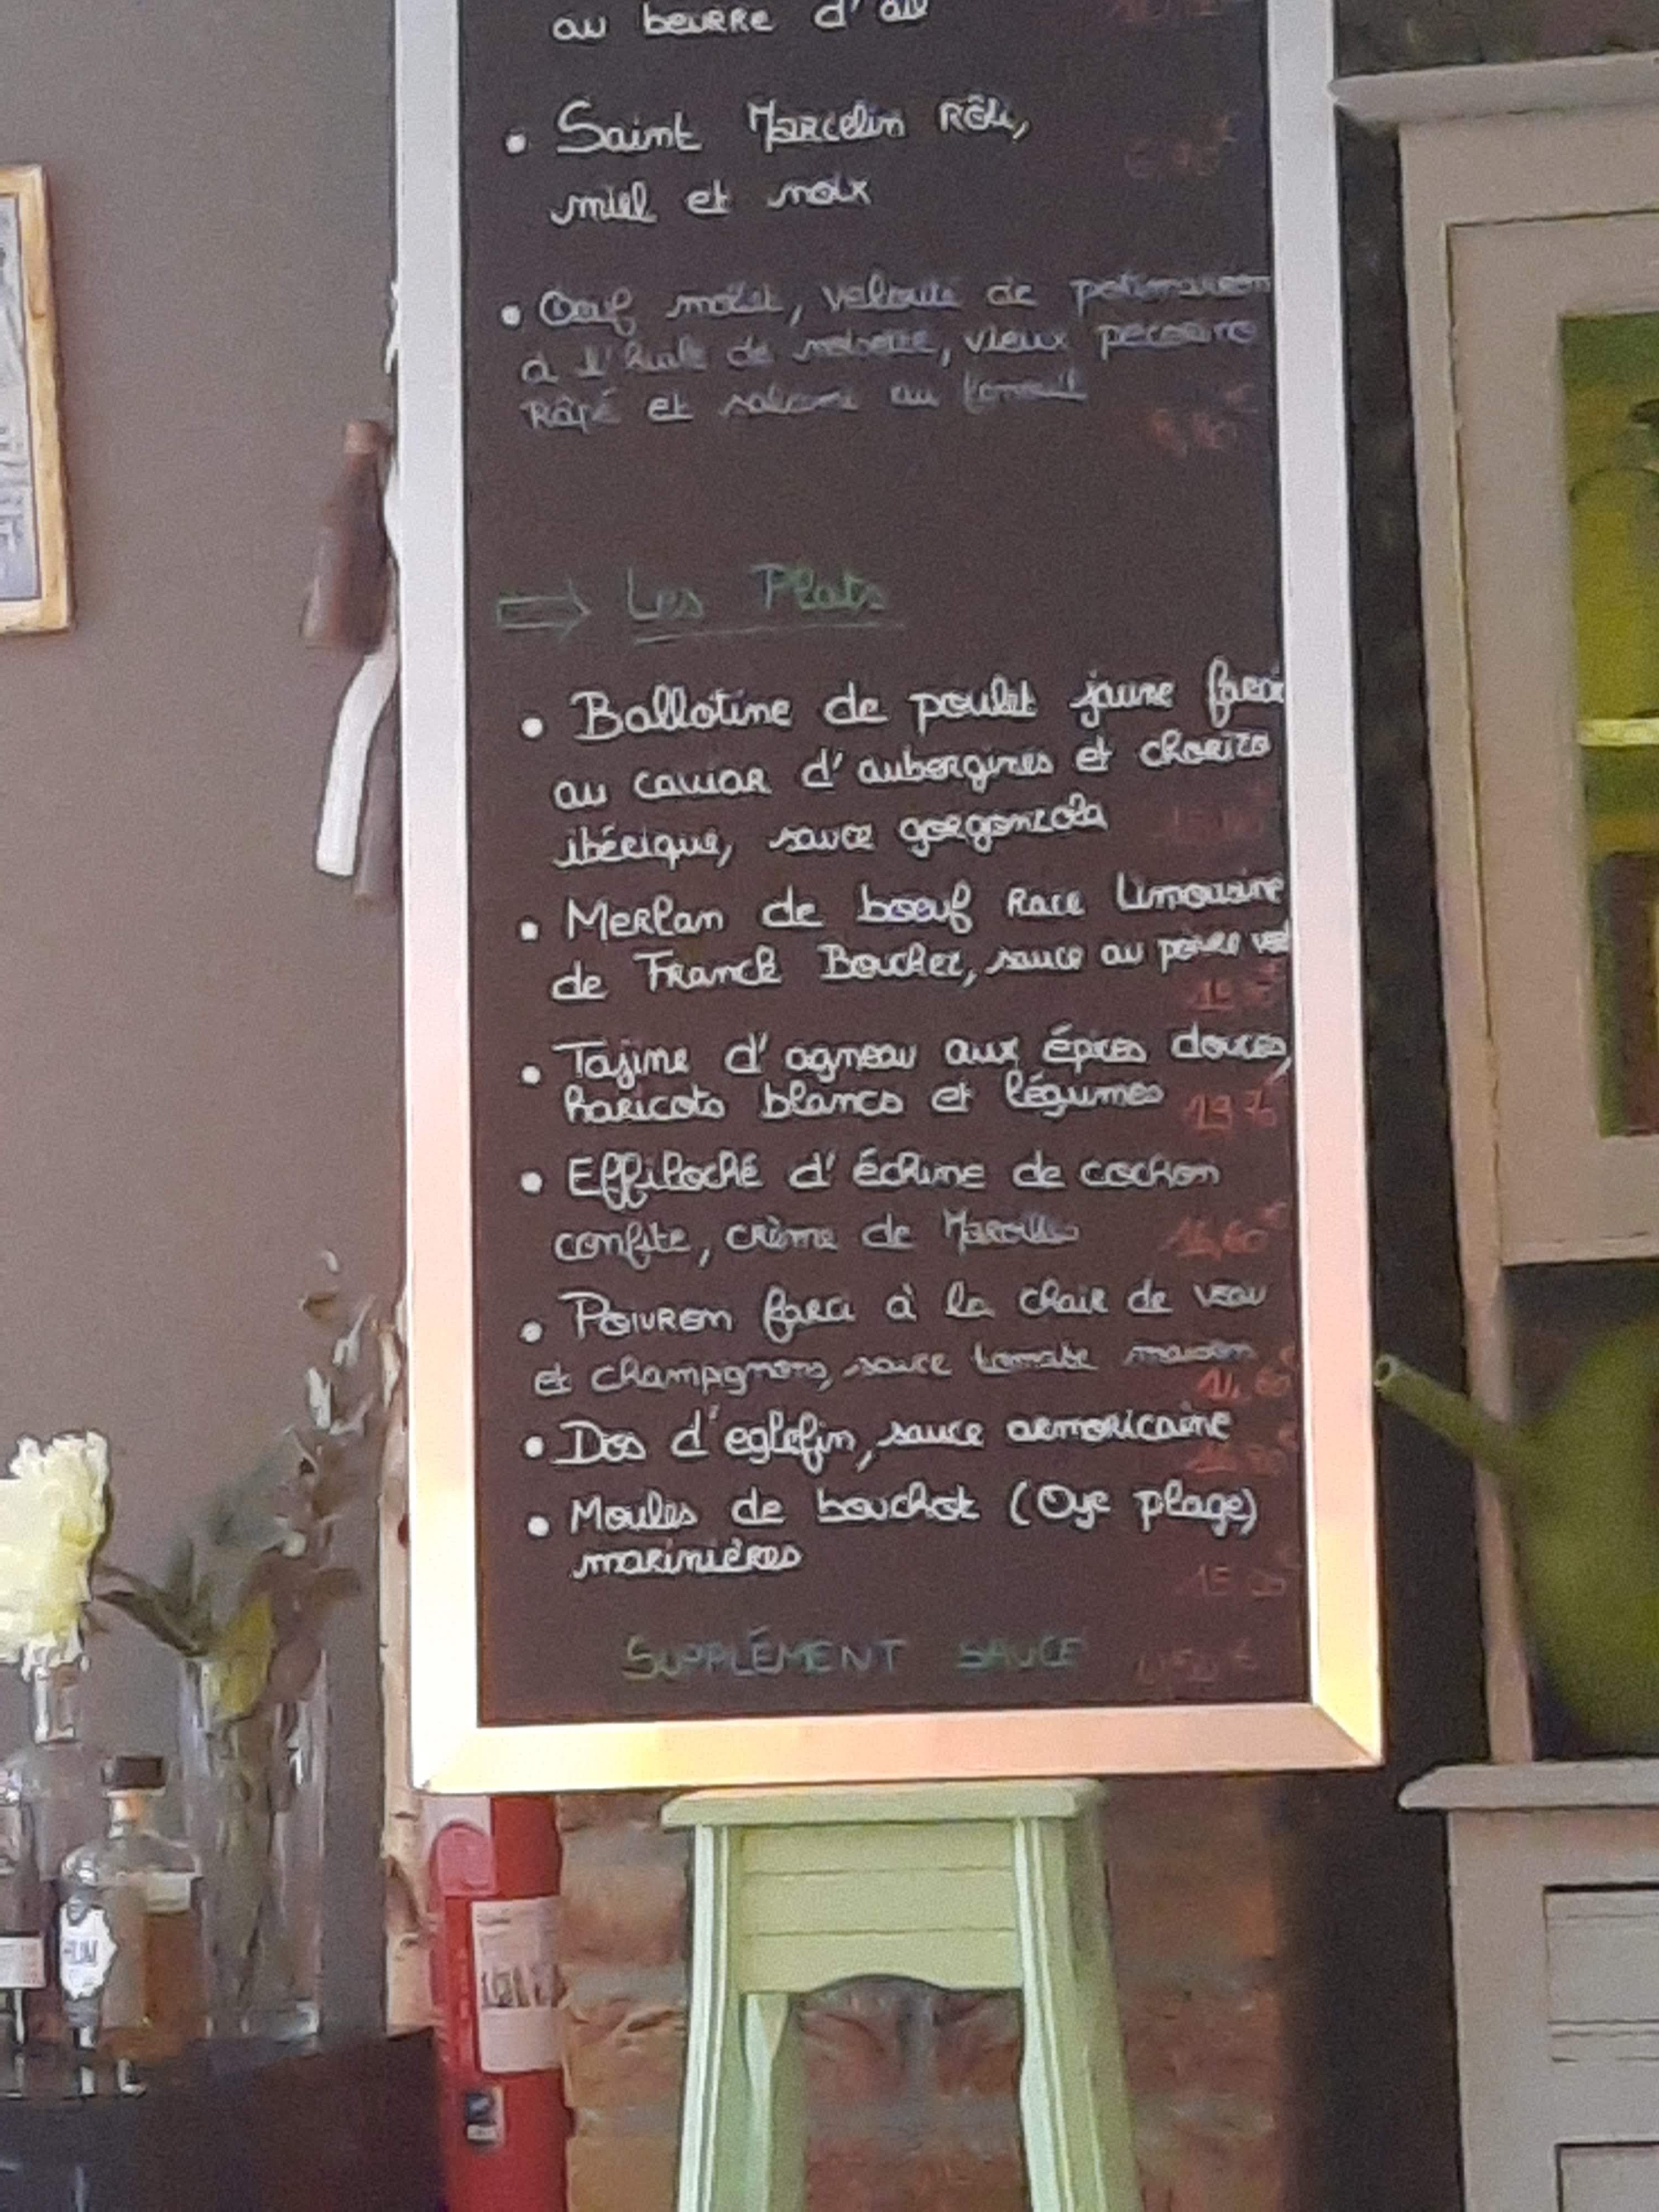 au beurre d'ail
• Saint Marcelin Rôti,
miel et noix
• Oeuf mollet, velouté de potimarron
à l'huile de noisette, vieux pecorino
Râpé et salami au fenouil
Les Plats
• Ballotine de poulet jaune farci
au caviar d'aubergines et chorizo
ibérique, sauce gorgonzola
• Merlan de boeuf Race Limousine
de Franck Bouchez, sauce au poivre vert
• Tajine d'agneau aux épices douces,
haricots blancs et légumes
• Effiloché d'échine de cochon
confite, crème de Maroilles
• Poivron farci à la chair de veau
et champignons, sauce tomate maison
• Dos d'eglefin, sauce armoricaine
• Moules de bouchot (Oye plage)
marinières
SUPPLÉMENT SAUCE